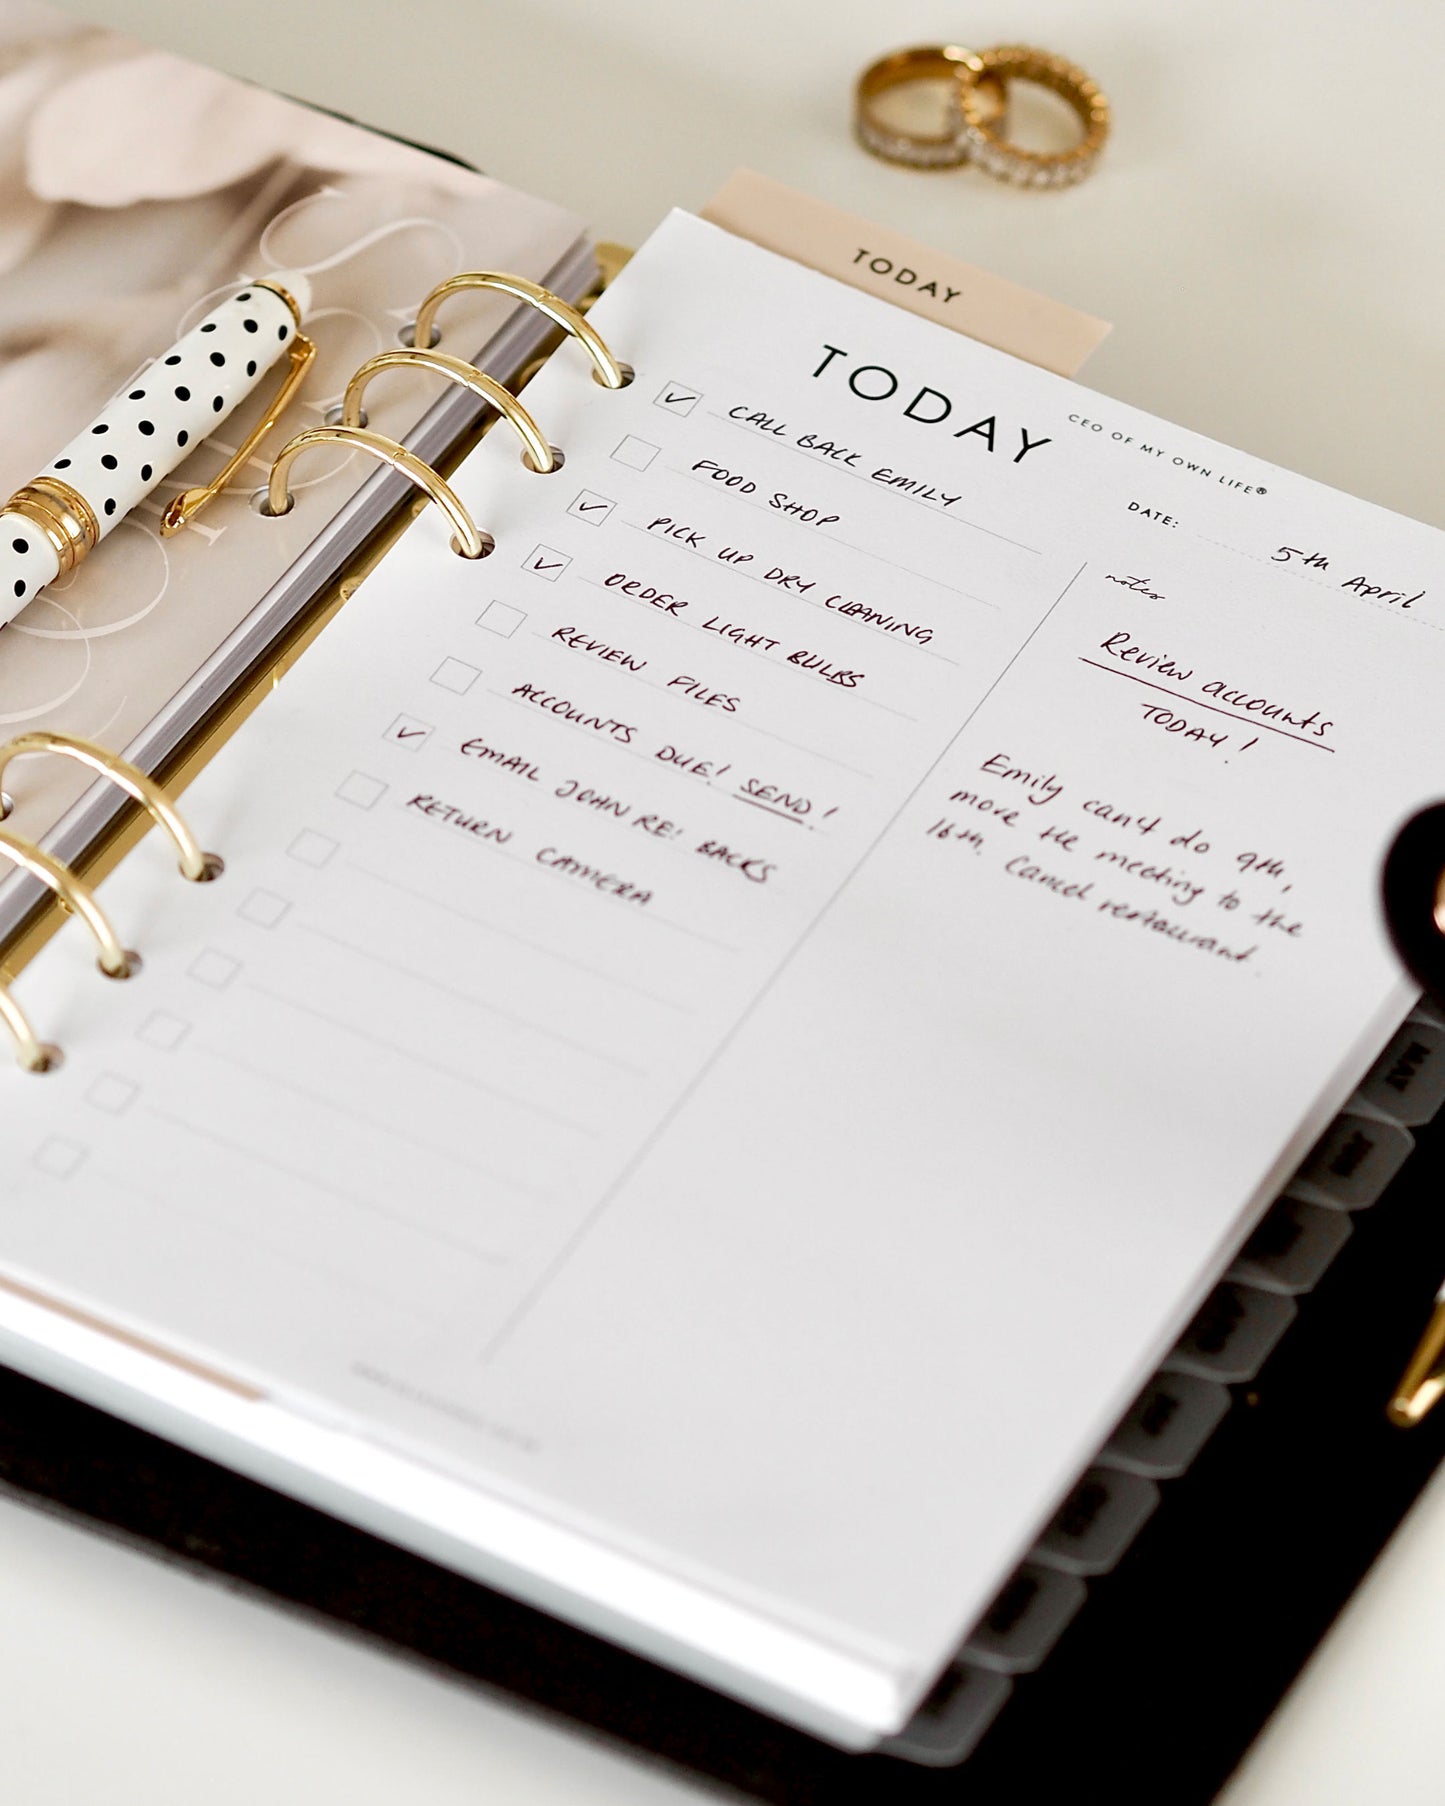 TODAY
TODAY
CEO OF MY OWN LIFE®
DATE: 5th April
CALL BACK EMILY
FOOD SHOP
PICK UP DRY CLEANING
ORDER LIGHT BULBS
REVIEW FILES
ACCOUNTS DUE! SEND!
EMAIL JOHN RE: BACKS
RETURN CAMERA
notes
Review accounts
TODAY!
Emily can't do 9th,
move the meeting to the
16th. Cancel restaurant.
MAY